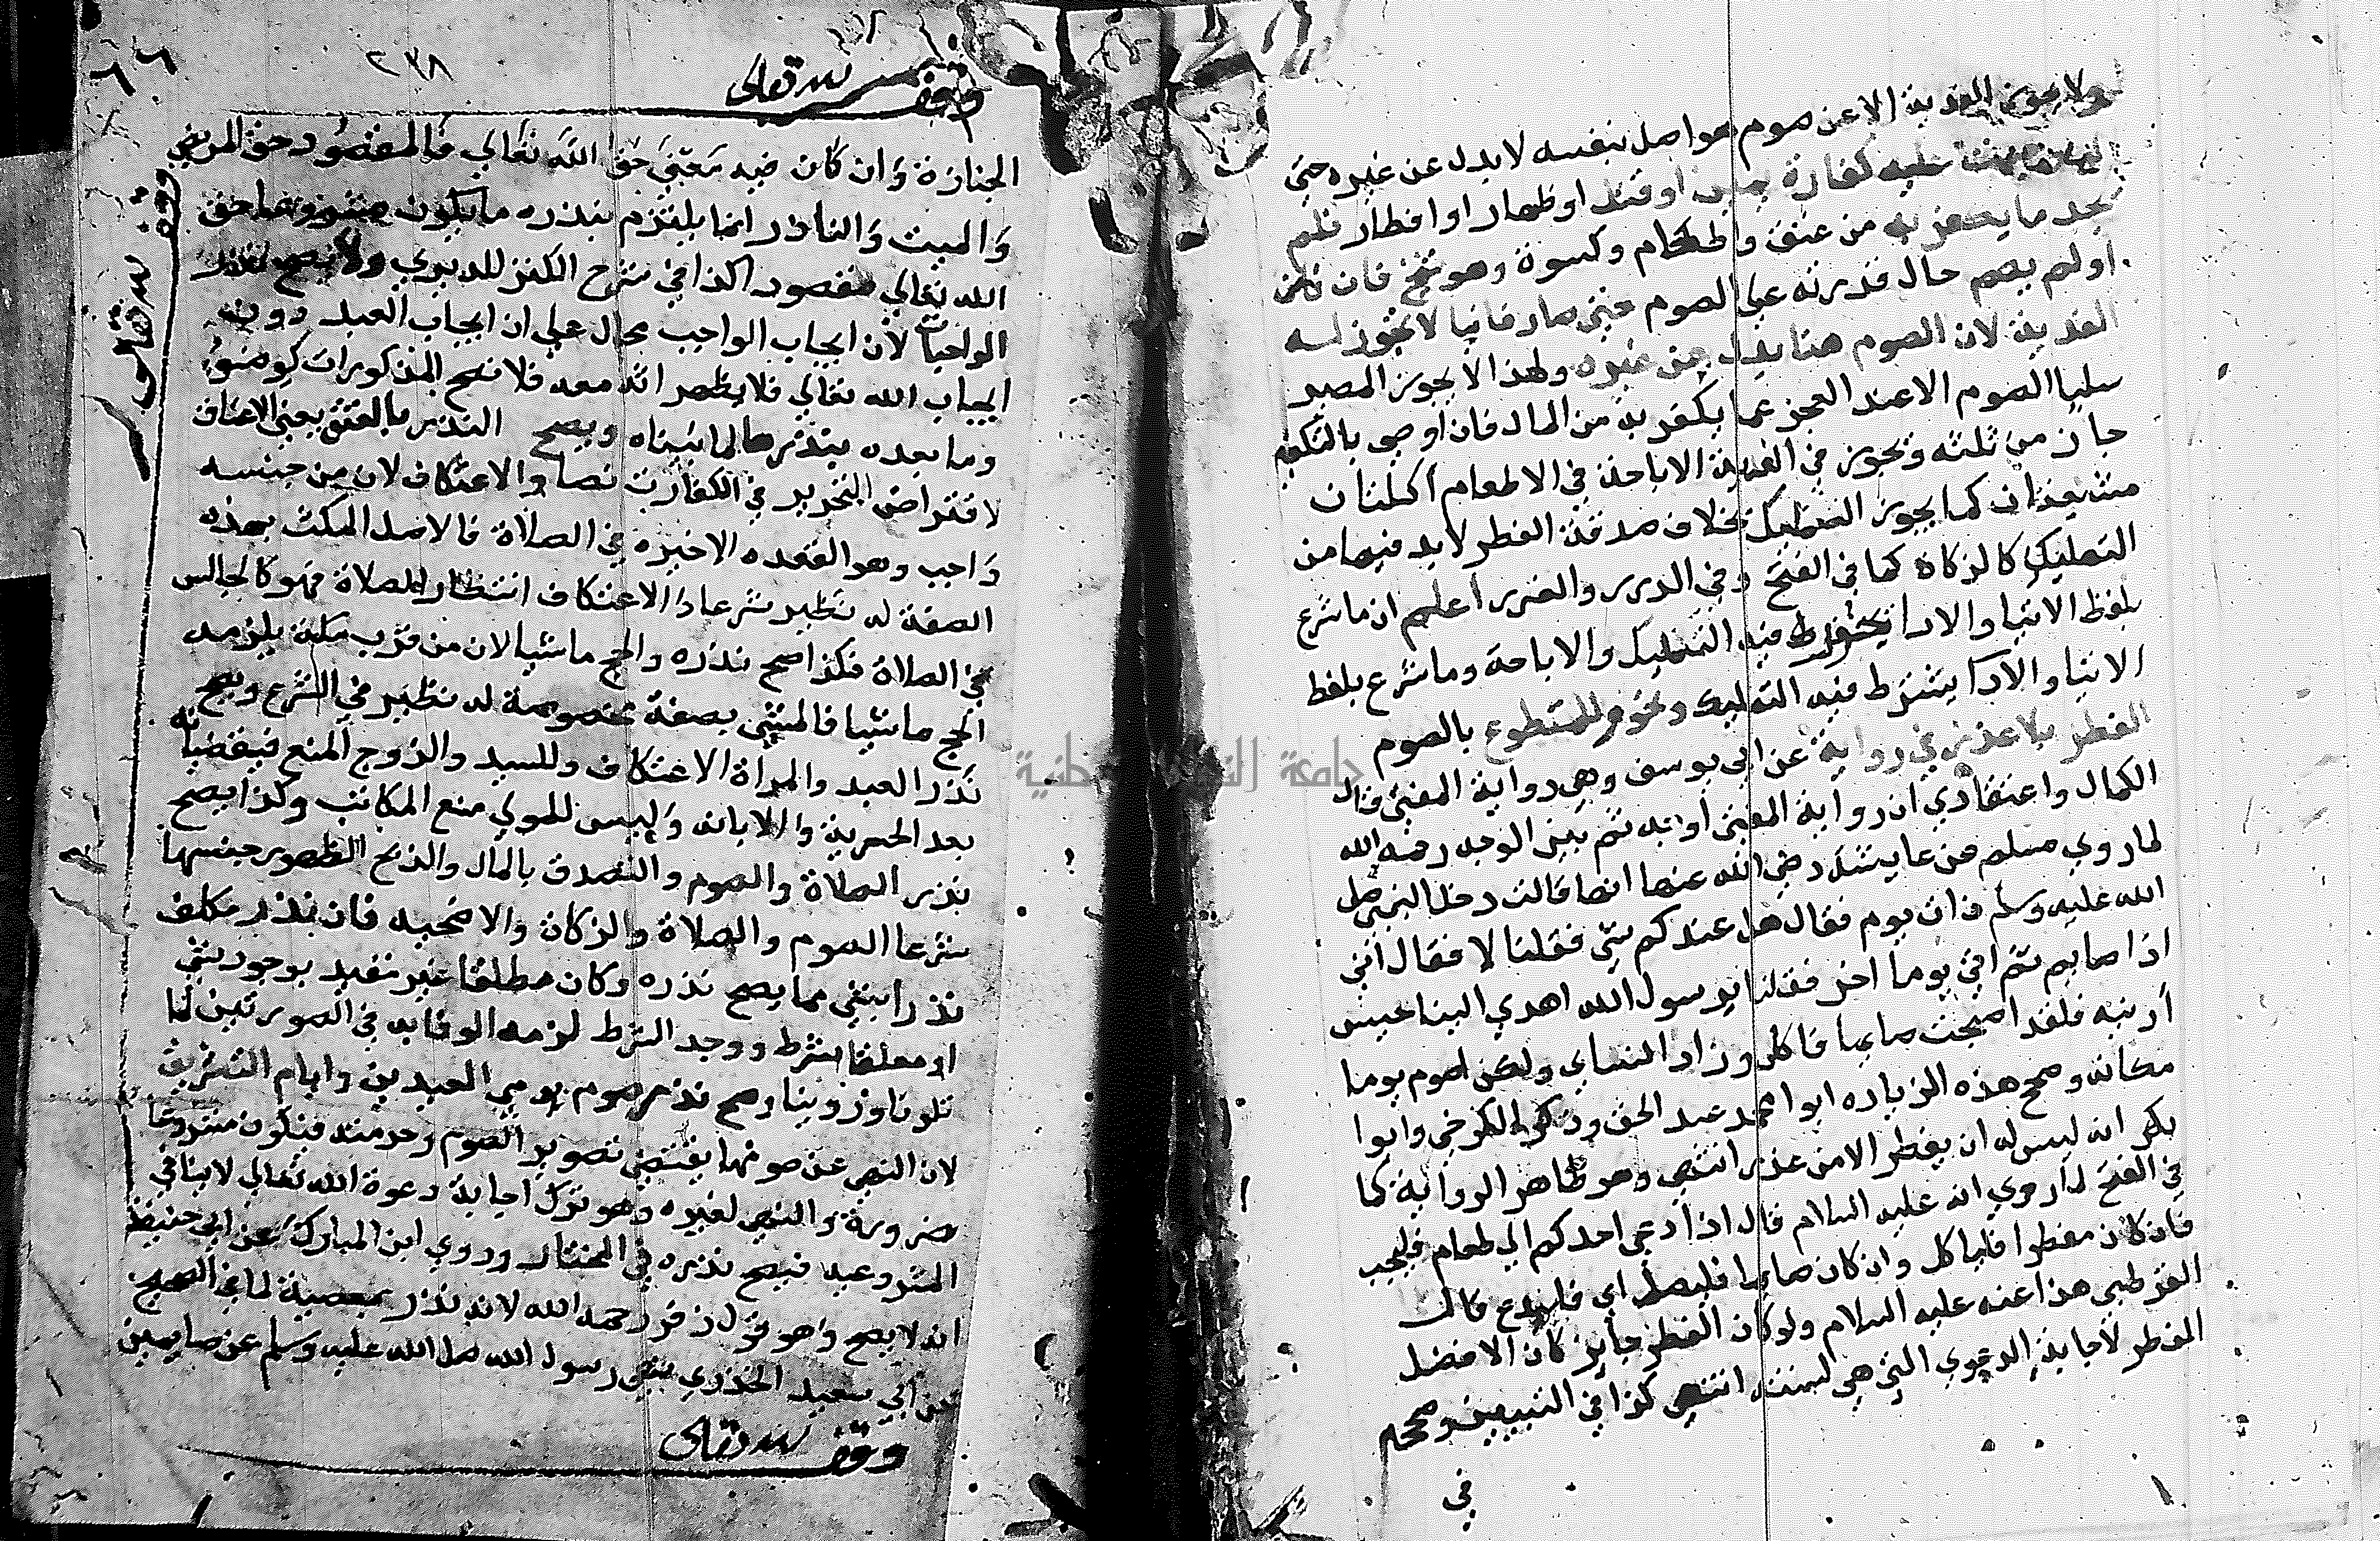 ولا تجوز الفدية الا عن صوم هو اصل بنفسه لا بدل عن غيره حتى
عليه كفارة يمين او قتل او ظهار او افطار فلم
يجد ما يكفر به من عتق واطعام وكسوة وهو شيخ فان
او لم يصم حال قدرته على الصوم حتى صار فانيا لا تجوز له
الفدية لان الصوم هنا بدل عن غيره ولهذا لا يجوز المصير
الى الصوم الا عند العجز عما يكفر به من المال فان اوصى بالتكفير
جاز من ثلثه وتجوز في الفدية الاباحة في الاطعام اكلتان
مشبعتان كما يجوز التمليك بخلاف صدقة الفطر لا بد فيها من
التمليك كالزكاة كما في الفتح وفي الدرر والغرر اعلم ان ما شرع
بلفظ الاتيا والادا يشترط فيه التمليك والاباحة وما شرع بلفظ
الاتيا والادا يشترط فيه التمليك ويجوز للمتطوع بالصوم
الفطر بلا عذر في رواية عن ابي يوسف وهي رواية المنتقى قال
الكمال واعتقادي ان رواية المنتقى اوجه ثم بين الوجه رحمه الله
لما روي مسلم عن عايشة رضي الله عنها انها قالت دخل النبي صلى
الله عليه وسلم ذات يوم فقال هل عندكم شي فقلنا لا فقال اني
اذا صايم ثم اتى يوما اخر فقلنا يرسول الله اهدي الينا حيس
أرنيه فلقد اصبحت صايما فاكل وزاد النساى ولكن اصوم يوما
مكانه وصحح هذه الزياده ابوا محمد عبد الحق وذكر الكرخي وابوا
بكر انه ليس له ان يفطر الا من عذر انتهى وهو ظاهر الرواية كما
في الفتح لما روي انه عليه السلام قال اذا دعي احدكم الى طعام فليجب
فان كان مفطرا فلياكل وان كان صايما فليصل اي فليدع قال
القرطبي هذا عنه عليه السلام ولو كان الفطر جايز كان الافضل
الفطر لاجابة الدعوي التي هي لسنة انتهى كذا في التبيين وصححه
في
٢٣٨
٦٦
وقف لله تعالى
الجنازة وَان كان فيه مَعنىَ حَق اللَّه تَعَالي فَالمقصُود حق المريض
وَالميت وَالناذر انما يلتزم بنذره ما يكون مشروعا حق
الله تعالي مقصودا كذا في شرح الكنز للديري ولا يصح نذر
الواجبات لان ايجاب الواجب محال علي ان ايجاب العبد دون
ايجاب الله تعالي فلا يظهر اثره معه فلا تصح المذكورات كوضوء
وما بعده بنذرها لما بيناه ويصح النذر بالعتق يعني الاعتاق
لافتراض التحرير في الكفارت نصا والاعتكاف لان من جنسه
وَاجب وهو القعده الاخيره في الصلاة فالاصل المكث بهذه
الصفة له نظير شرعا وَالاعتكاف انتظار للصلاة فهو كالجالس
في الصلاة فلذا صح نذره والحج ماشيا لان من قرب مكة يلزمه
الحج ماشيا فالمشي بصفة مخصوصة له نظير في الشرع ويصح
نَذر العبد والمراة الاعتكاف وللسيد والزوج المنع فيقضيانه
بعد الحرية والابانه وَليس للمولي منع المكاتب وكذا يصح
بنذر الصلاة والصوم والتصدق بالمال والذبح لظهور جنسها
شرعا الصوم والصلاة والزكاة والاضحيه فان نذر مكلف
نذرا بشي مما يصح نذره وكان مطلقا غير مقيد بوجود شي
او معلقا بشرط ووجد الشرط لزمه الوفا به في الصورتين لما
تلونا وروينا وصح نذر صوم يومي العيدين وايام التشريق
لان النهي عن صومها يقتضي تصوير الصوم وحرمته فيكون مشروعا
ضرورة والنهي لغيره وهو ترك اجابة دعوة الله تعالي لا ينافي
المشروعيه فيصح نذره في المختار وروي ابن المبارك عن ابي حنيفة
انه لا يصح وَهو قول زفر رحمه الله لانه نذر بمعصية لما في الصحيح
عن ابي سعيد الخدري نهى رسول الله صلى الله عليه وسلم عن صايمين
وقف لله تعالى
وقف لله تعالى